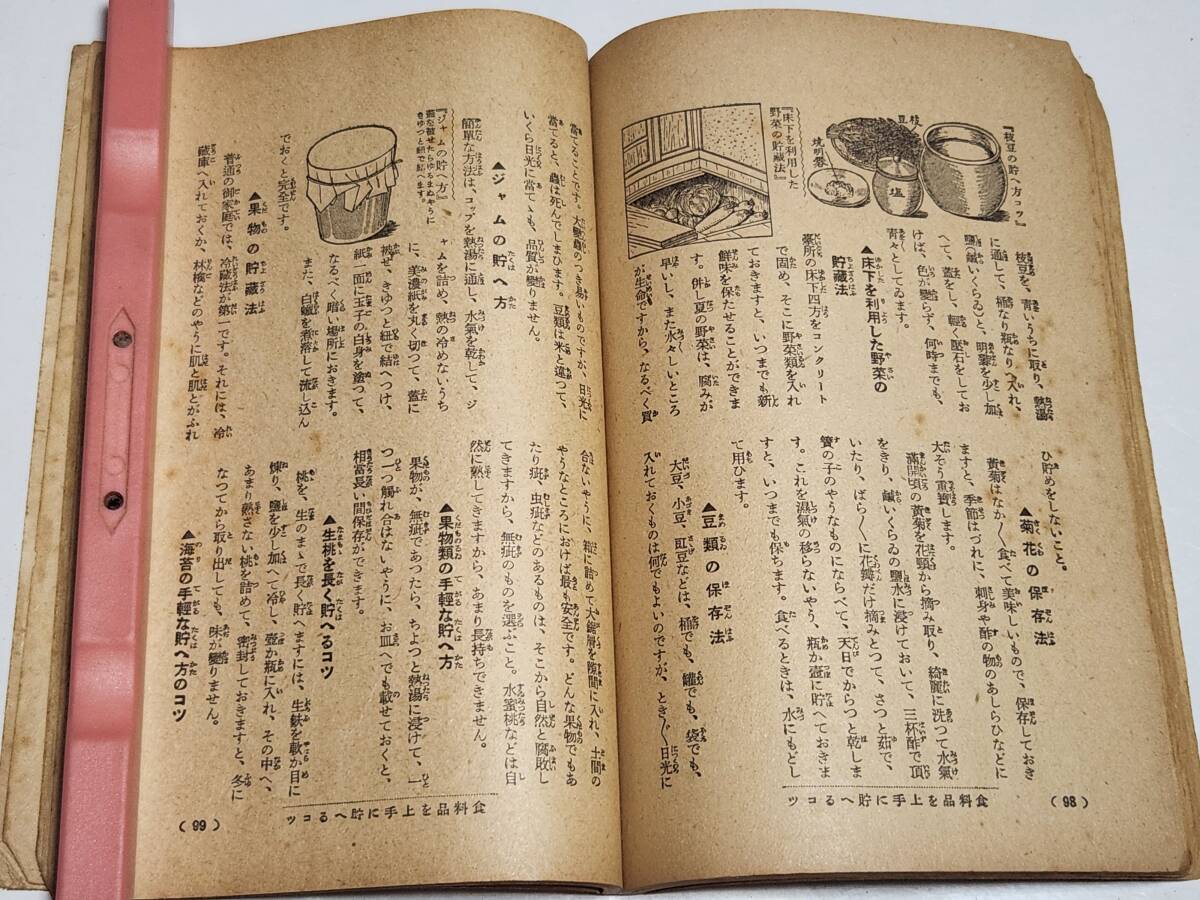 『枝豆の貯へ方コツ』
枝豆
塩
焼明礬
『床下を利用した
野菜の貯蔵法』
枝豆を、青いうちに取り、熱湯
に通して、桶なり瓶なりへ入れ、
鹽(鹹いくらゐ)と、明礬を少し加
へて、蓋をし、輕く壓石をしてお
けば、色が變らず、何時までも、
青々としてゐます。
▲床下を利用した野菜の
貯藏法
臺所の床下四方をコンクリート
で固め、そこに野菜類を入れ
ておきますと、いつまでも新
鮮味を保たせることができま
す。併し夏の野菜は、腐みが
早いし、また水々しいところ
が生命ですから、なるべく買
ひ貯めをしないこと。
▲菊花の保存法
黄菊はなか〳〵食べて美味しいもので、保存しておき
ますと、季節はづれに、刺身や酢の物のあしらひなどに
大そう重寶します。
滿開頃の黄菊を花頸から摘み取り、綺麗に洗つて水氣
をきり、鹹いくらゐの鹽水に浸けておいて、三杯酢で頂
いたり、ばら〳〵に花瓣だけ摘みとつて、さつと茹で、
簀の子のやうなものにならべて、天日でからつと乾しま
す。これを濕氣の移らないやう、瓶か壺に貯へておきま
すと、いつまでも保ちます。食べるときは、水にもどし
て用ひます。
▲豆類の保存法
大豆、小豆、豇豆などは、桶でも、罐でも、袋でも、
入れておくものは何でもよいのですが、とき〴〵日光に
食料品を上手に貯へるコツ
(98)
當てることです。大變蟲のつき易いものですが、日光に
當てると、蟲は死んでしまひます。豆類は米と違つて、
いくら日光に當てゝも、品質が變りません。
▲ジャムの貯へ方
簡單な方法は、コップを熱湯に通し、水氣を乾して、ジ
ャムを詰め、熱の冷めないうち
に、美濃紙を丸く切つて、蓋に
被せ、きゆつと紐で結へつけ、
紙一面に玉子の白身を塗つて、
なるべく暗い場所におきます。
また、白蠟を煮溶して流し込ん
『ジャムの貯へ方』
蓋を被せたらゆるまぬやうに
きゆつと紐で結へます。
でおくと完全です。
▲果物の貯藏法
普通の御家庭では、冷藏法が第一です。それには、冷
藏庫へ入れておくか、林檎などのやうに肌と肌とがふれ
合ないやうに、箱に詰めて大鋸屑を隙間に入れ、土間の
やうなところにおけば最も安全です。どんな果物でもあ
たり疵、虫疵などのあるものは、そこから自然と腐敗し
てきますから、無疵のものを選ぶこと。水蜜桃などは自
然に熟してきますから、あまり長持ちできません。
▲果物類の手輕な貯へ方
果物が、無疵であつたら、ちよつと熱湯に浸けて、一
つ一つ觸れ合はないやうに、お皿へでも載せておくと、
相當長い間保存ができます。
▲生桃を長く貯へるコツ
桃を、生のまゝで長く貯へますには、生麩を軟か目に
煉り、鹽を少し加へて冷し、壺か瓶に入れ、その中へ、
あまり熟さない桃を詰めて、密封しておきますと、冬に
なつてから取り出しても、味が變りません。
▲海苔の手輕な貯へ方のコツ
食料品を上手に貯へるコツ
(99)